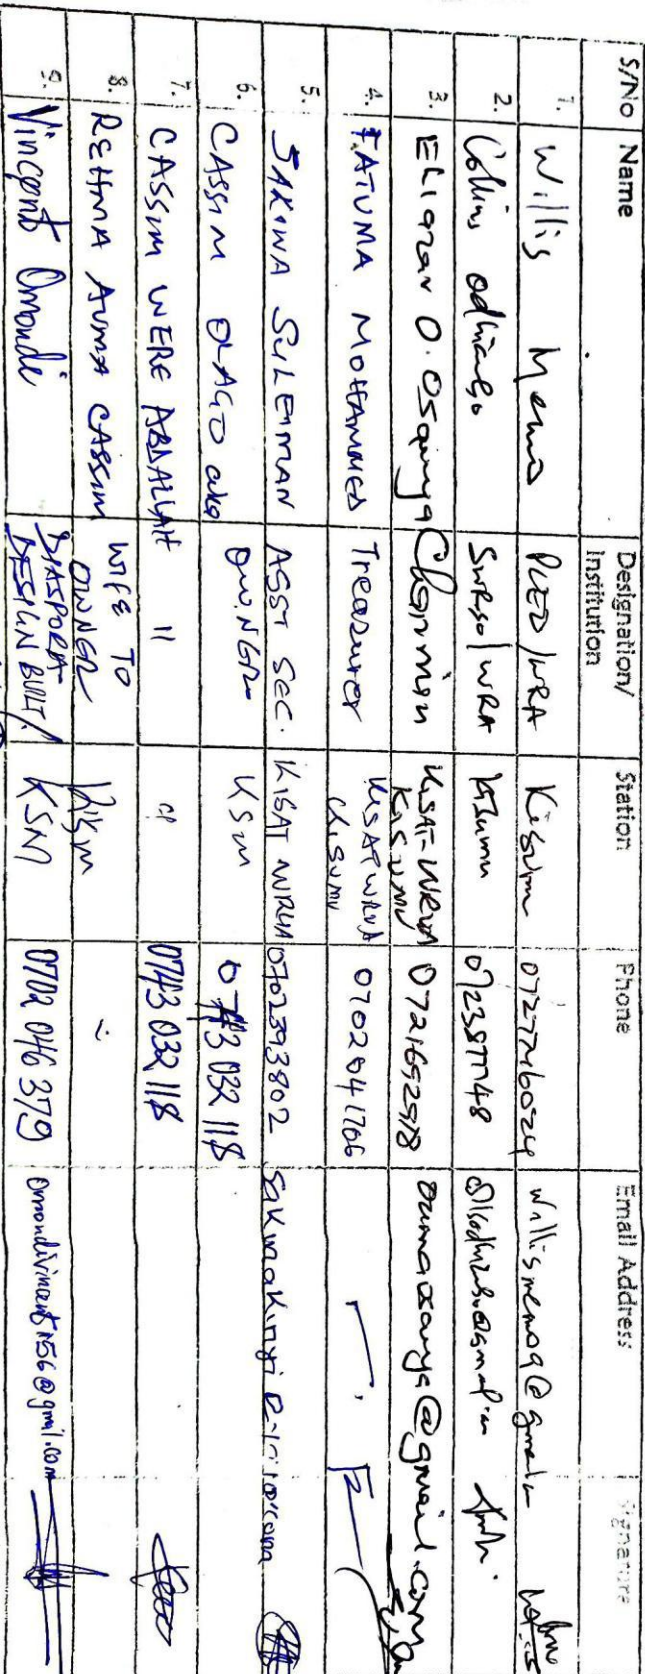 S/No Name Designation/ Institution Station Phone Email Address Signature
1. Willis Memo /WRA Kisumu 0727746024
2. Collins Odhiambo /WRA Kisumu
3. Eliazar O. Osanya Chairman KISAT-WRUA KISUMU 0721692978 oumaosanya@gmail.com
4. FATUMA MOHAMMED Treasurer KISAT WRUA KISUMU 0702041766
5. SAKINA SULEIMAN ASST SEC. KISAT WRUA 0702393802
6. CASSIM OLAGO aka OWNER KSM 0743 032 118
7. CASSIM WERE ABDALLAH 11 0743 032 118
8. REHMA AUMA CASSIM WIFE TO OWNER KSM
9. Vincent Omondi DIASPORA DESIGN BUILT/ KSM 0702 046 379 omondivincent156@gmail.com